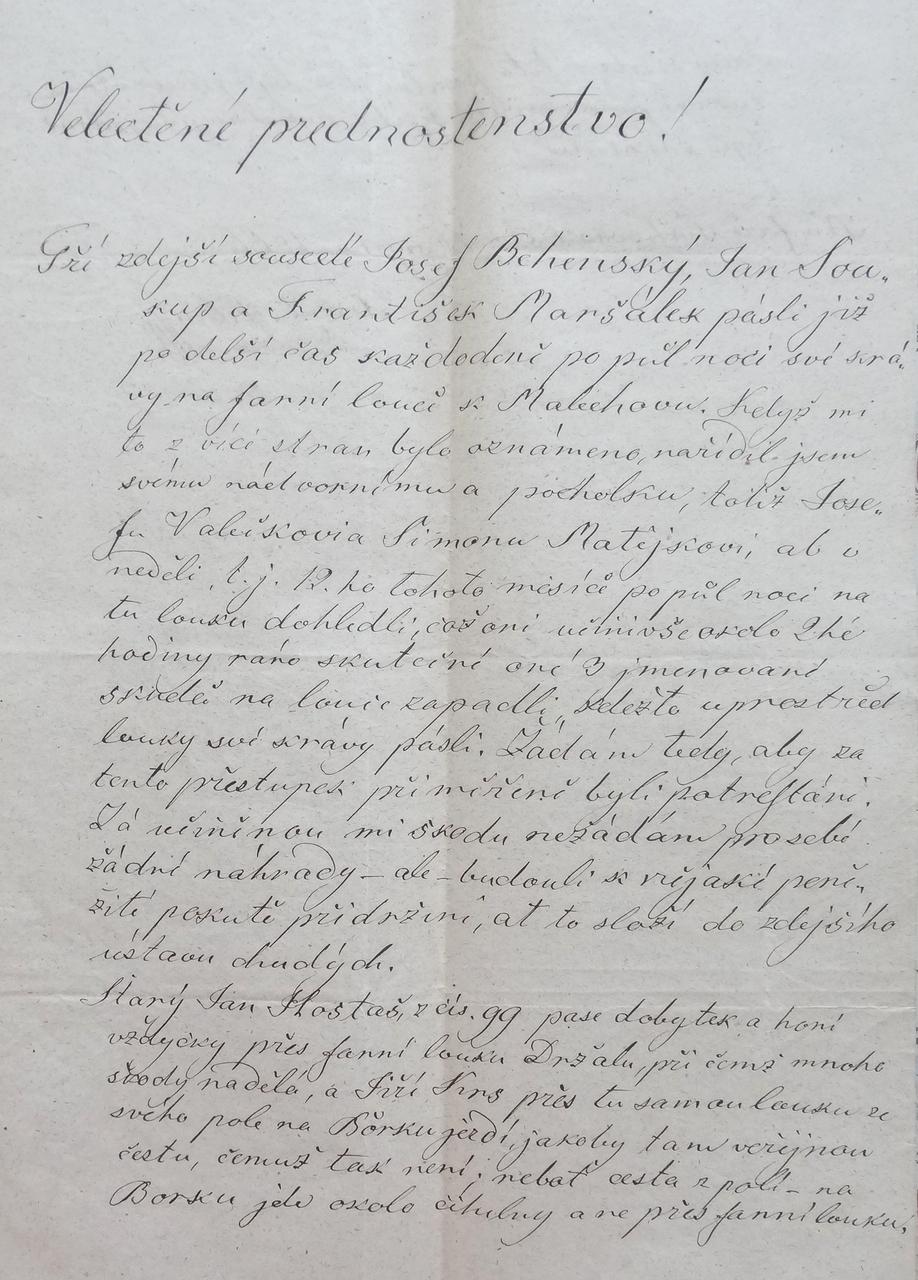 Velectěné prednostenstvo!
Tří zdejší sousedé Josef Behenský, Jan Sou„
kup a František Maršálek pásli již
po delší čas každodeně po půl noci své krá„
vy na farní louce k Malechovu. Když mi
to z více stran bylo oznámeno, nařídil jsem
svému nádvornímu a pocholku, totiž Jose„
fu Valeškovi a Šimonu Matějkovi, ab v
neděli, t. j. 12. ho tohoto měsíce po půl noci na
tu louku dohledli, což oni učinivše okolo 2hé
hodiny ráno skutečně oné 3 jmenované
na louce zapadli, kdežto uprostřed
louky své krávy pásli. Žádám tedy, aby za
tento přestupek přiměřeně byli potrestáni.
Za učiněnou mi škodu nežádám pro sebe
žádné náhrady – ale – budouli k nějaké peně„
žité pokutě přidrženi, ať to složí do zdejšího
ústavu chudých.
Starý Jan Hostaš, z čís. 99 pase dobytek a honí
vždycky přes farní louku Držalu, při čemž mnoho
škody nadělá, a Jiří přes tu samou louku ze
svého pole na Bórku jezdí, jakoby tam veřejnou
cestu, čemuž tak není; nebať cesta z polí – na
Borku jde okolo cihelny a ne přes farní louku.